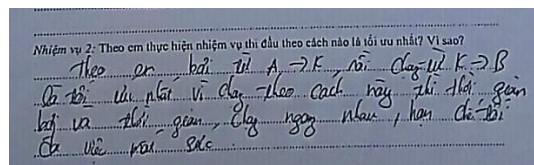 Nhiệm vụ 2: Theo em thực hiện nhiệm vụ thi đấu theo cách nào là tối ưu nhất? Vì sao?
Theo em bơi từ A → K, rồi chạy từ K → B
là tối ưu nhất vì chạy theo cách này thì thời gian
bơi và thời gian chạy ngang nhau, hạn chế tối
đa việc mất sức